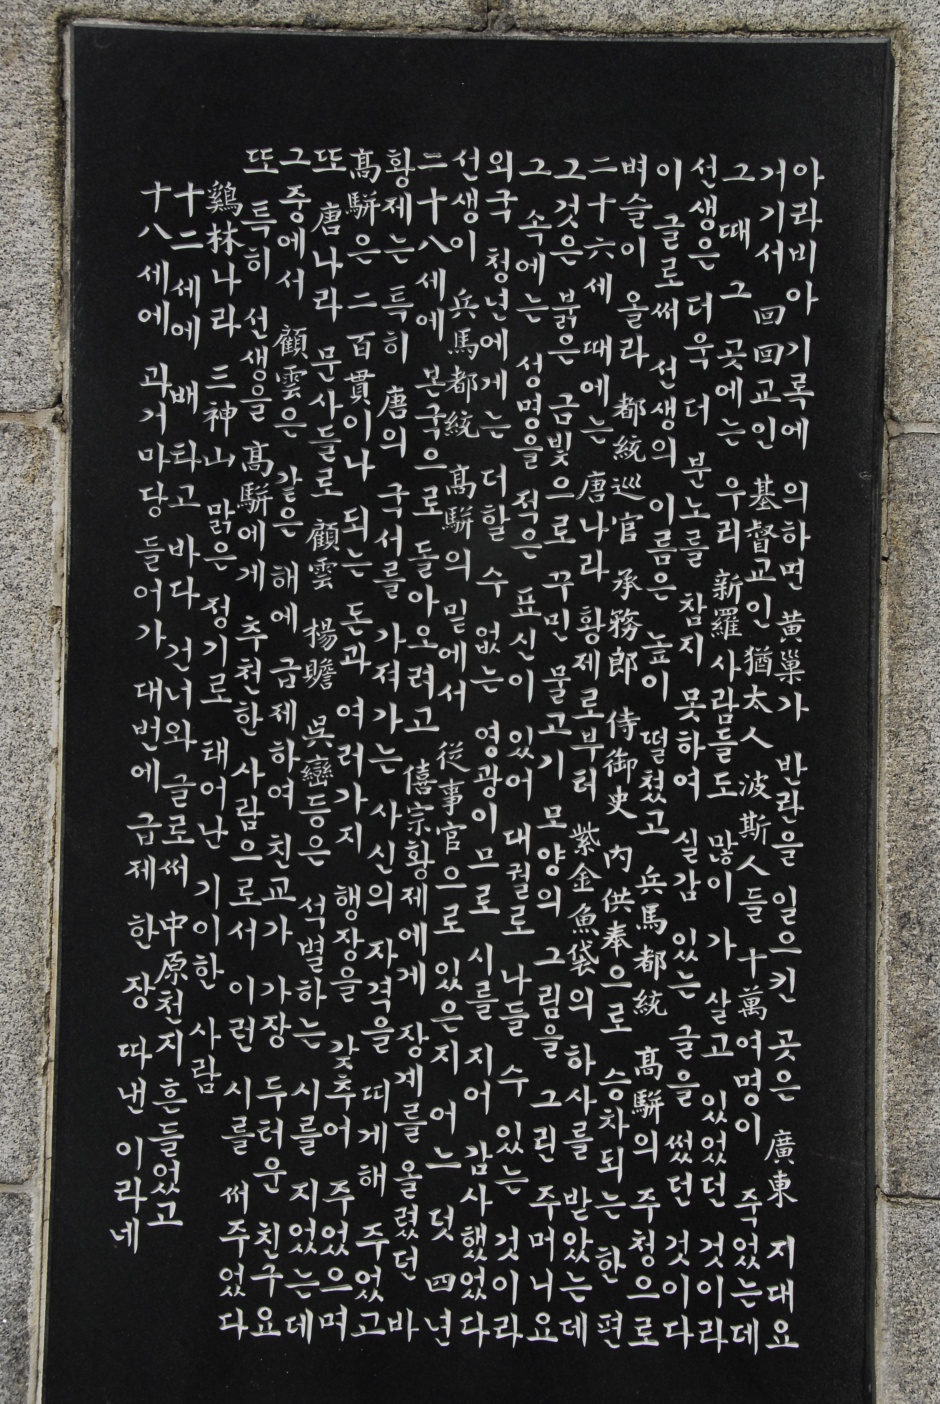 아라비아 기록에 의하면 黃巢가 반란을 일으킨 곳은 廣東 지대요
거기서 回回교인 基督교인 猶太人 波斯人들 十萬여명이 죽었는데
그때 그 곳에는 우리 新羅 사람들도 많이 가 살고 있었던 것이라
선생은 더욱 더 분노를 참지 못하여 실감 있는 글을 썼던 것이다
이 글로써 선생의 이름은 높이 떨쳤고 兵馬都統 高騈의 주청으로
벼슬이 올라 都統巡官 承務郎 侍御史 內供奉으로 승차되는 한편
二十六세 때에는 唐나라 황제로부터 紫金魚袋의 하사를 받았는데
그것은 붉은 금빛으로 꾸민 물고기 모양의 그림을 그린 주머니요
그 속에는 성명을 적은 표신이 있어 대궐로 나들 수 있는 것이라
외국 청년에게는 더할 수 없는 영광이므로 시를 지어 감사했었다
선생이 兵馬都統 高騈의 밑에서 從事官으로 있은지 어느덧 四년
二十八세에 본국으로 돌아오려고 僖宗황제에게 장계를 올렸던 바
황제는 특히 唐의 국서를 가져가는 사신의 자격을 띠게해 주었고
高騈은 二百貫이나 되는 돈과 여러가지 행장을 갖추어 주었으며
또 唐나라 문사들로 顧雲 楊贍 吳巒등은 석별하는 시를 지었는데
그 중에서 顧雲은 같은 해에 급제하여 친교가 가장 두터운 친구요
또 특히 선생을 高騈에게 추천한 사람으로서 이런 시를 써주었다
鷄林나라 三神山 맑은 정기로 태어난 기이한 사람
十二세에 배 타고 바다 건너와 글로써 中原천지 흔들었고
十八세에 과거마당 들어가 대번에 급제 한 장 따낸 이라네